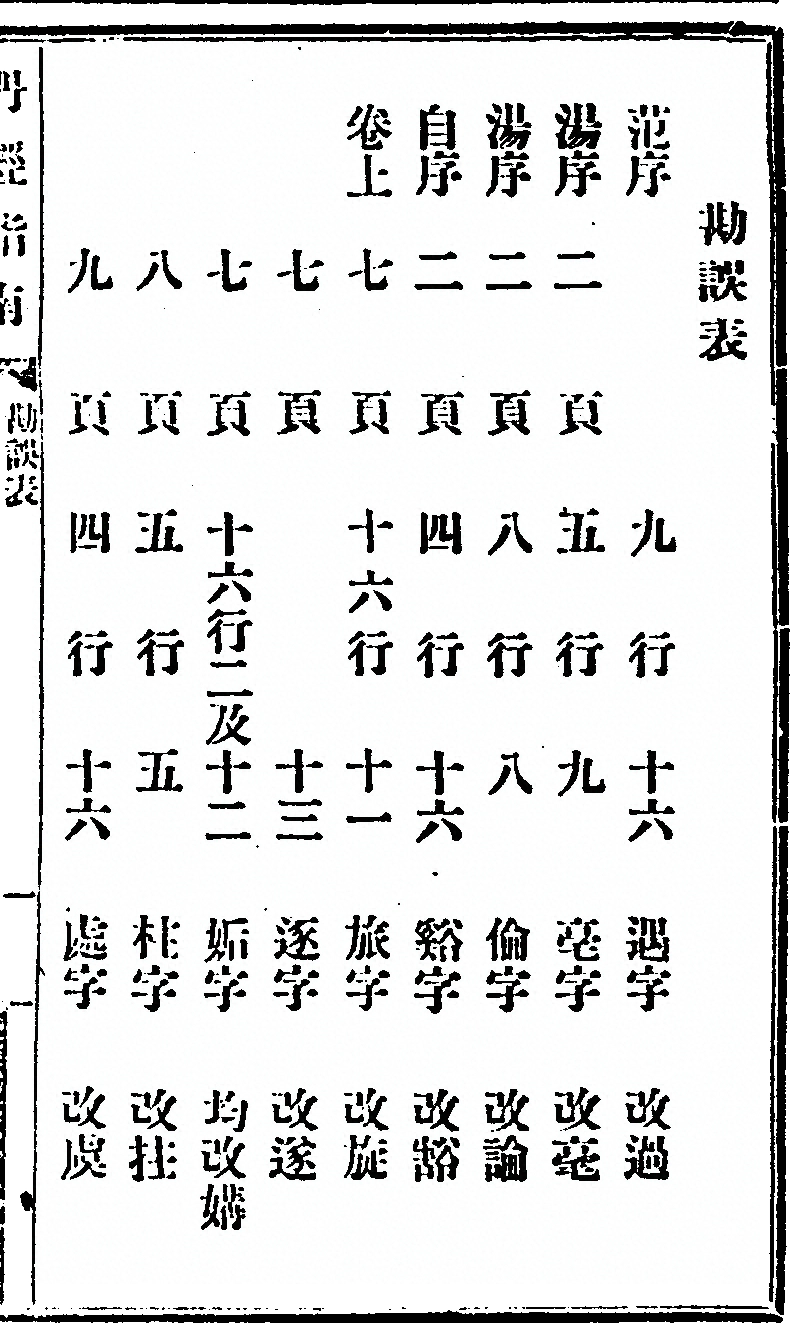 勘誤表
范序 九行 十六 遇字 改過
湯序 二頁 五行 九 亳字 改毫
湯序 二頁 八行 八 倫字 改論
自序 二頁 四行 十六 谿字 改豁
卷上 七頁 十六行 十一 旅字 改旋
七頁 十三 逐字 改遂
七頁 十六行二及十二 姤字 均改媾
八頁 五行 五 柱字 改拄
九頁 四行 十六 處字 改虞
丹經指南 勘誤表 一